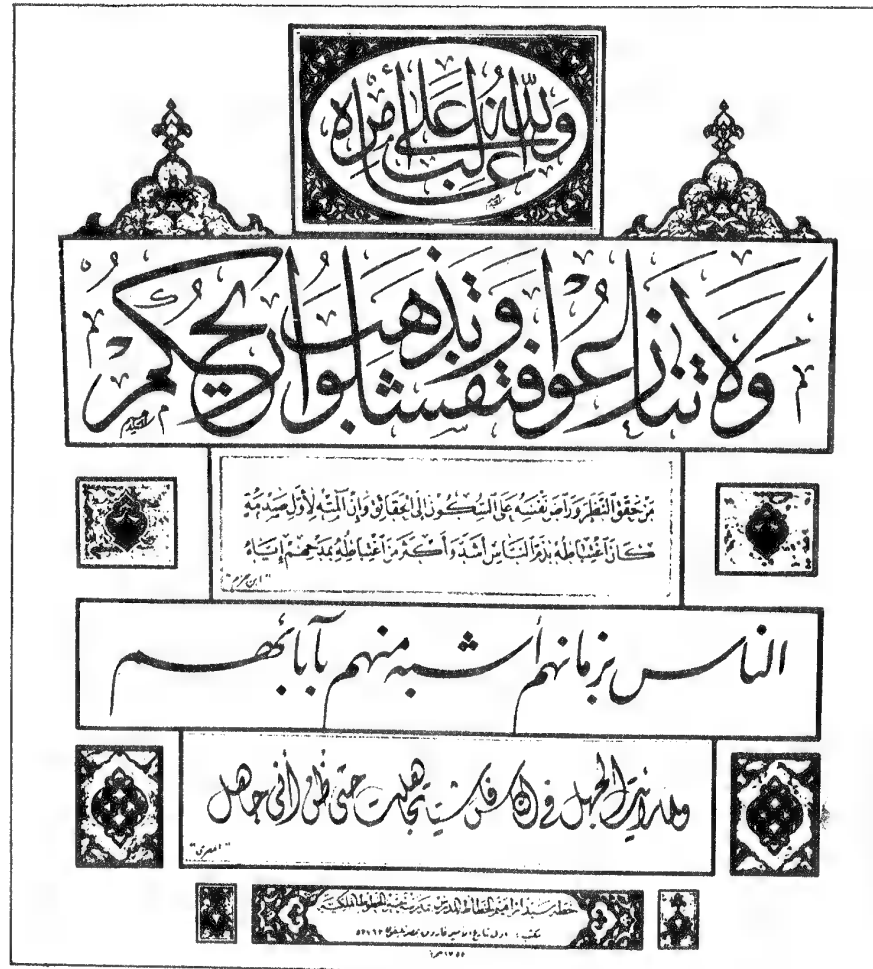 وَاللهُ غَالِبٌ عَلَى أَمْرِهِ
وَلَا تَنَازَعُوا فَتَفْشَلُوا وَتَذْهَبَ رِيحُكُمْ
مَنْ حَقَّقَ النَّظَرَ وَرَاضَ نَفْسَهُ عَلَى السُّكُونِ إِلَى الْحَقَائِقِ وَإِنْ آلَمَتْهُ لِأَوَّلِ صَدْمَةٍ
كَانَ اغْتِبَاطُهُ بِذَمِّ النَّاسِ أَشَدَّ وَأَكْثَرَ مِنِ اغْتِبَاطِهِ بِمَدْحِهِمْ إِيَّاهُ
"ابن حزم"
الناس بزمانهم أشبه منهم بآبائهم
ولما رأيت الجهل في الناس فاشيا تجاهلت حتى ظن أني جاهل
"المعري"
خطه سيد إبراهيم الخطاط المدرس بمدرسة تحسين الخطوط الملكية
مكتب : أول شارع الأمير فاروق بمصر تليفون